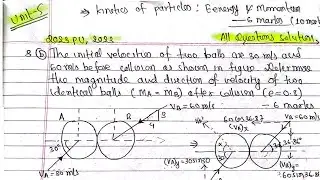 Unit-5
→ kinetics of particles : Energy & Momentum
— 6 marks (10 mar
2023 PU, 2022
All Questions solution
8. b) The initial velocities of two balls are 30 m/s and
60 m/s before collision as shown in figure. Determine
the magnitude and direction of velocity of two
identical balls (mA = mB) after collision (e = 0.8)
— 6 marks
A B
VB = 60 m/s
3
4
30°
VA = 30 m/s
VA'
60cos36.87
(VB)x
VB = 60 m/s
36.86°
(VA)y = 30sin30
(VB)y =
60sin36.8